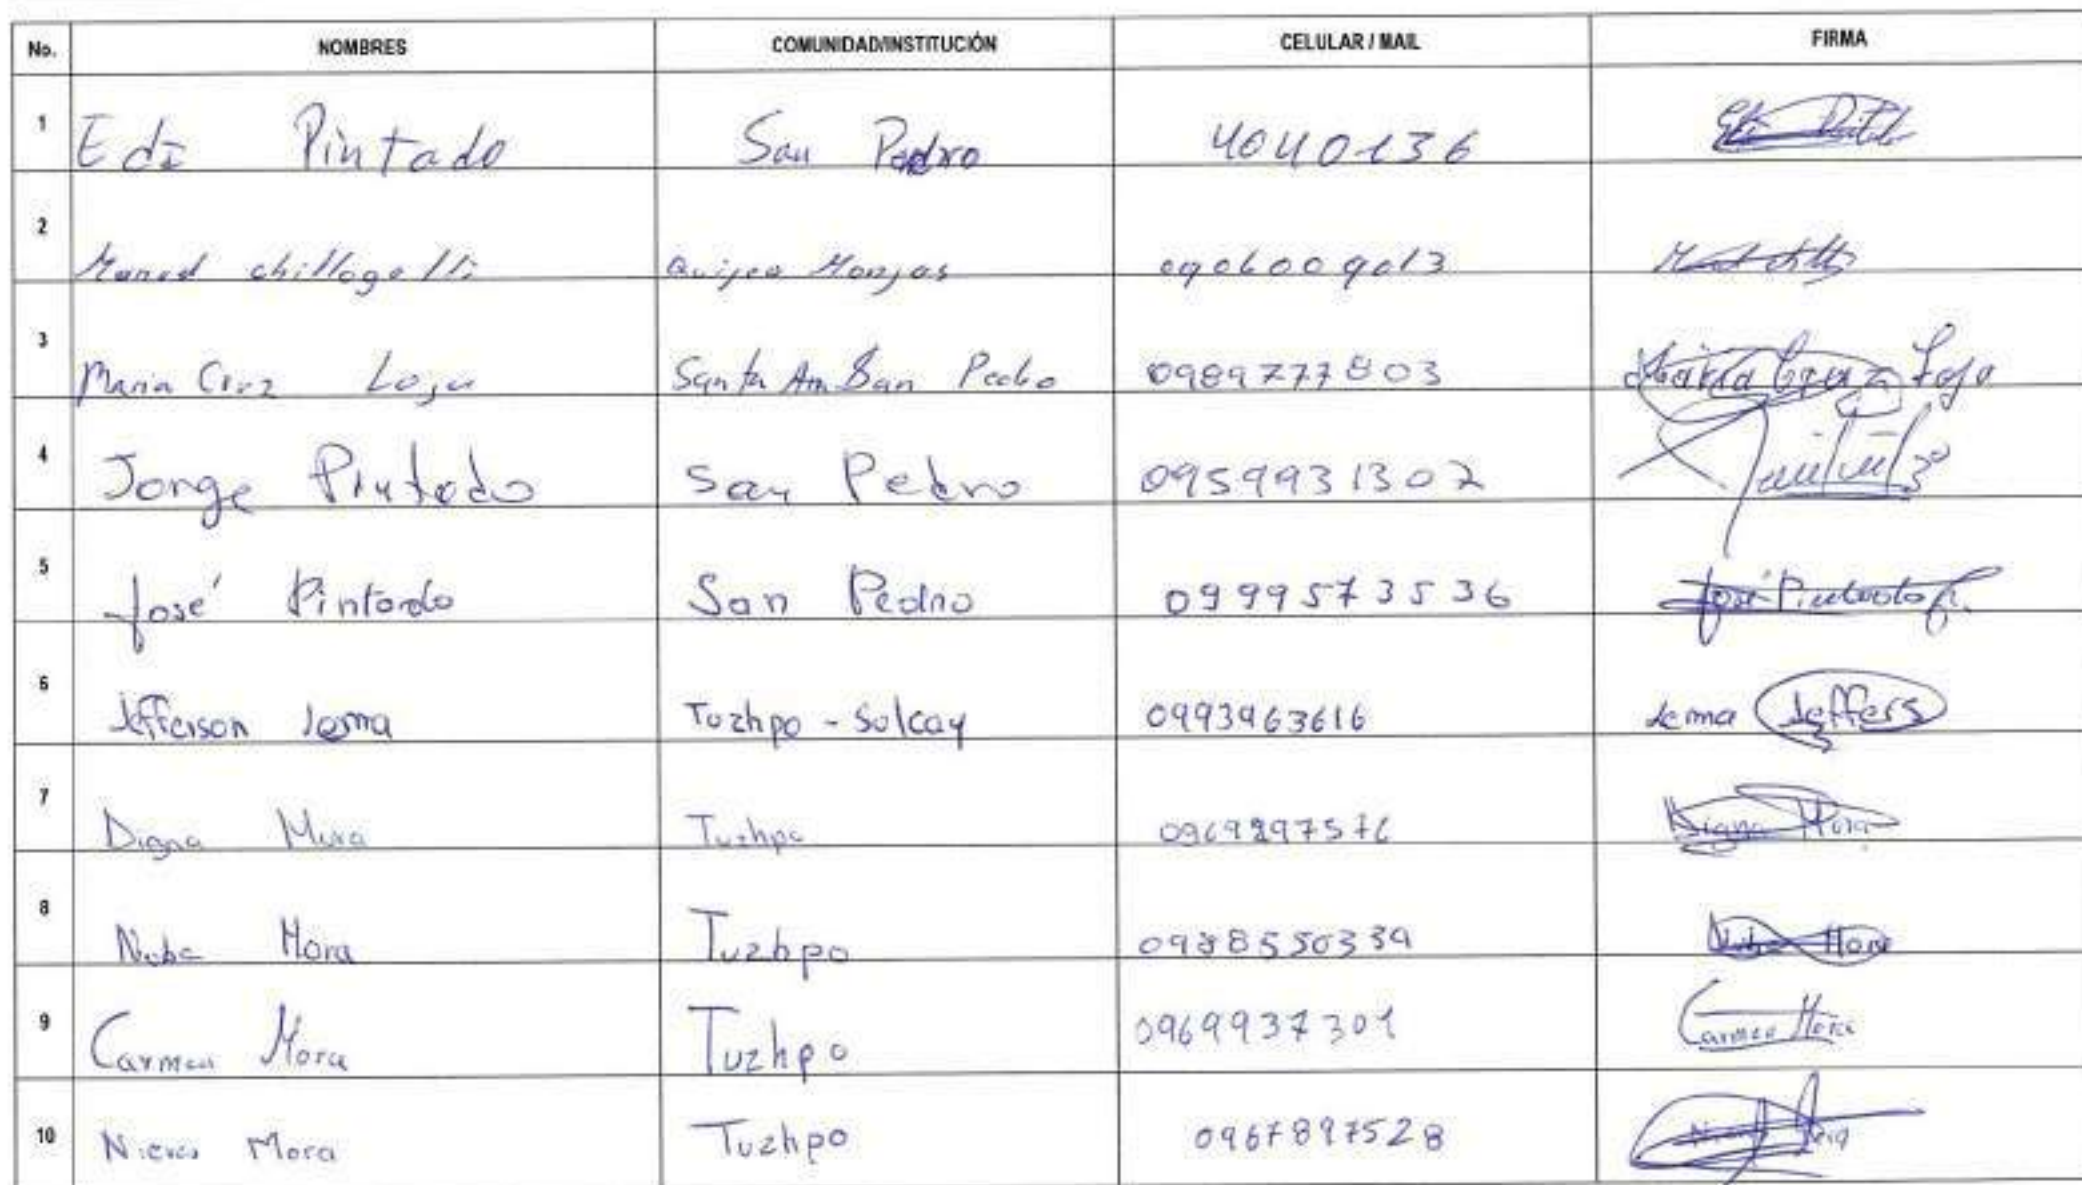 No. NOMBRES COMUNIDAD/INSTITUCIÓN CELULAR / MAIL FIRMA
1 Edi Pintado San Pedro 4040136
2 Manuel chillogalli Quijea Monjas 0906009013
3 Maria Cruz Loja Santa Ana San Pedro 0989777803 Maria Cruz Loja
4 Jorge Pintado San Pedro 0959931302
5 José Pintado San Pedro 0999573536 José Pintado
6 Jefferson Lema Tuzhpo - Sulcay 0993963616 Lema Jeffers
7 Digna Mora Tuzhpo Digna Mora
8 Nube Mora Tuzhpo 0988550339 Nube Mora
9 Carmen Mora Tuzhpo 0969937301 Carmen Mora
10 Nieves Mora Tuzhpo 0967897528